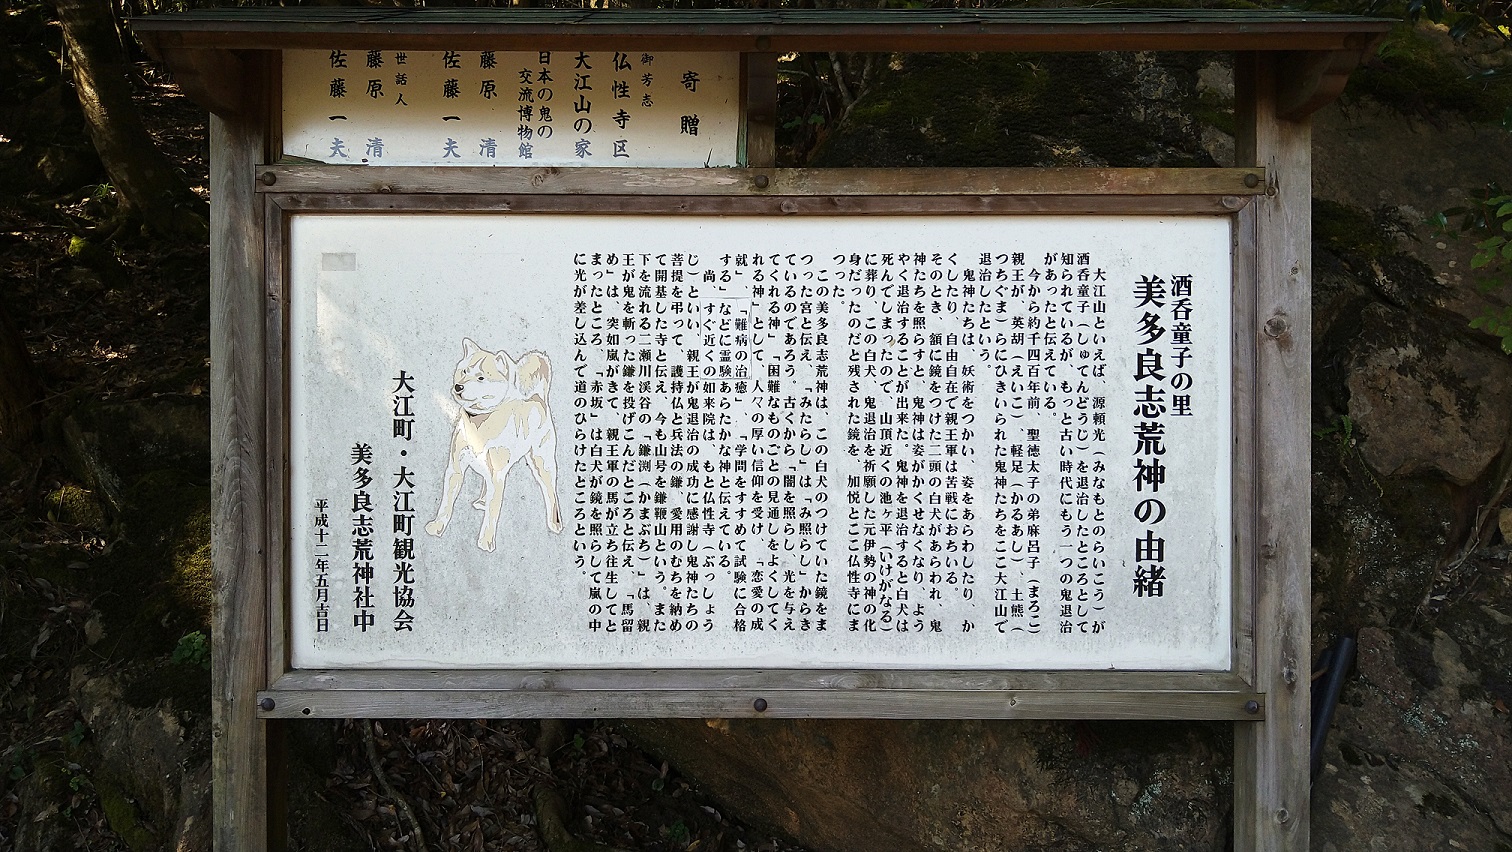 寄贈
御芳志
仏性寺区
大江山の家
日本の鬼の
交流博物館
藤原清
佐藤一夫
世話人
藤原清
佐藤一夫
酒呑童子の里
美多良志荒神の由緒
大江山といえば、源頼光（みなもとのらいこう）が
酒呑童子（しゅてんどうじ）を退治したところとして
知られているが、もっと古い時代にもう一つの鬼退治
があったと伝えている。
今から約千四百年前、聖徳太子の弟麻呂子（まろこ）
親王が、英胡（えいこ）、軽足（かるあし）、土熊（
つちぐま）らにひきいられた鬼神たちをここ大江山で
退治したという。
鬼神たちは、妖術をつかい、姿をあらわしたり、か
くしたり、自由自在で親王軍は苦戦におちいる。
そのとき、額に鏡をつけた二頭の白犬があらわれ、鬼
神たちを照らすと、鬼神は姿がかくせなくなり、よう
やく退治することが出来た。鬼神を退治すると白犬は
死んでしまったので、山頂近くの池ヶ平（いけがなる）
に葬り、この白犬、鬼退治を祈願した元伊勢の神の化
身だったのだと残された鏡を、加悦とここ仏性寺にま
つった。
この美多良志荒神は、この白犬のつけていた鏡をま
つった宮と伝え、「みたらし」は「み照らし」からき
ているのであろう。古くから「闇を照らし、光を与え
てくれる神」「困難なものごとの見通しをよくしてく
れる神」として、人々の厚い信仰を受け、「恋愛の成
就」、「難病の治癒」、「学問をすすめて試験に合格
する」などに霊験あらたかな神と伝えている。
尚、すぐ近くの如来院は、もと仏性寺（ぶっしょう
じ）といい、親王が鬼退治の成功に感謝し鬼神たちの
菩提を弔って、護持仏と兵法の鎌、愛用のむちを納め
て開基した寺と伝え、今も山号を鎌鞭山という。また
下を流れる二瀬川渓谷の「鎌渕（かまぶち）」は、親
王が鬼を斬った鎌を投げこんだところと伝え、「馬留
め」は、突如嵐がきて、親王軍の馬が立ち往生してと
まったところ、「赤坂」は白犬が鏡を照らして嵐の中
に光が差し込んで道のひらけたところという。
大江町・大江町観光協会
美多良志荒神社中
平成十二年五月吉日